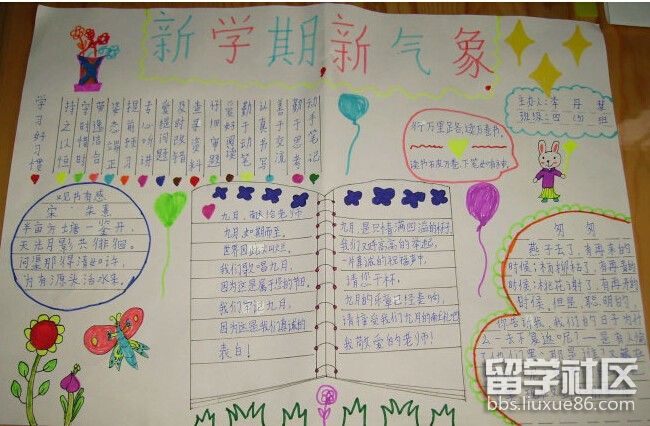 新学期新气象
主办人:李丹慧
班级:四(4)班
行万里路,读万卷书。
读书百度万卷,下笔如有神。
学习好习惯
持之以恒
学时惜时
姿态端正
提前预习
专心听讲
爱提问题
及时改错
查寻资料
仔细审题
爱好阅读
勤于动笔
认真书写
善于交流
勤于思考
动手笔记
观书有感
宋 朱熹
半亩方塘一鉴开,
天光云影共徘徊。
问渠那得清如许,
为有源头活水来。
九月,献给老师
九月,如期而至。
我们歌唱九月,
因为这是属于您的节日,
我们牢记九月,
因为这是我们真诚的
表白!
九月,是只惜满四溢的杯,
我们又好高高的举起,
一片真诚的祝福声中,
请您干杯。
九月的乐章已经奏响,
请接受我们九月的献礼吧
我敬爱的老师!
匆匆
燕子去了,有再来的
时候;杨柳枯了,有再青的
时候;桃花谢了,有再开的
时候。但是,聪明的,
你告诉我,我们的日子为什
么一去不复返呢?—是有人偷
留学社区
bbs.liuxue86.com